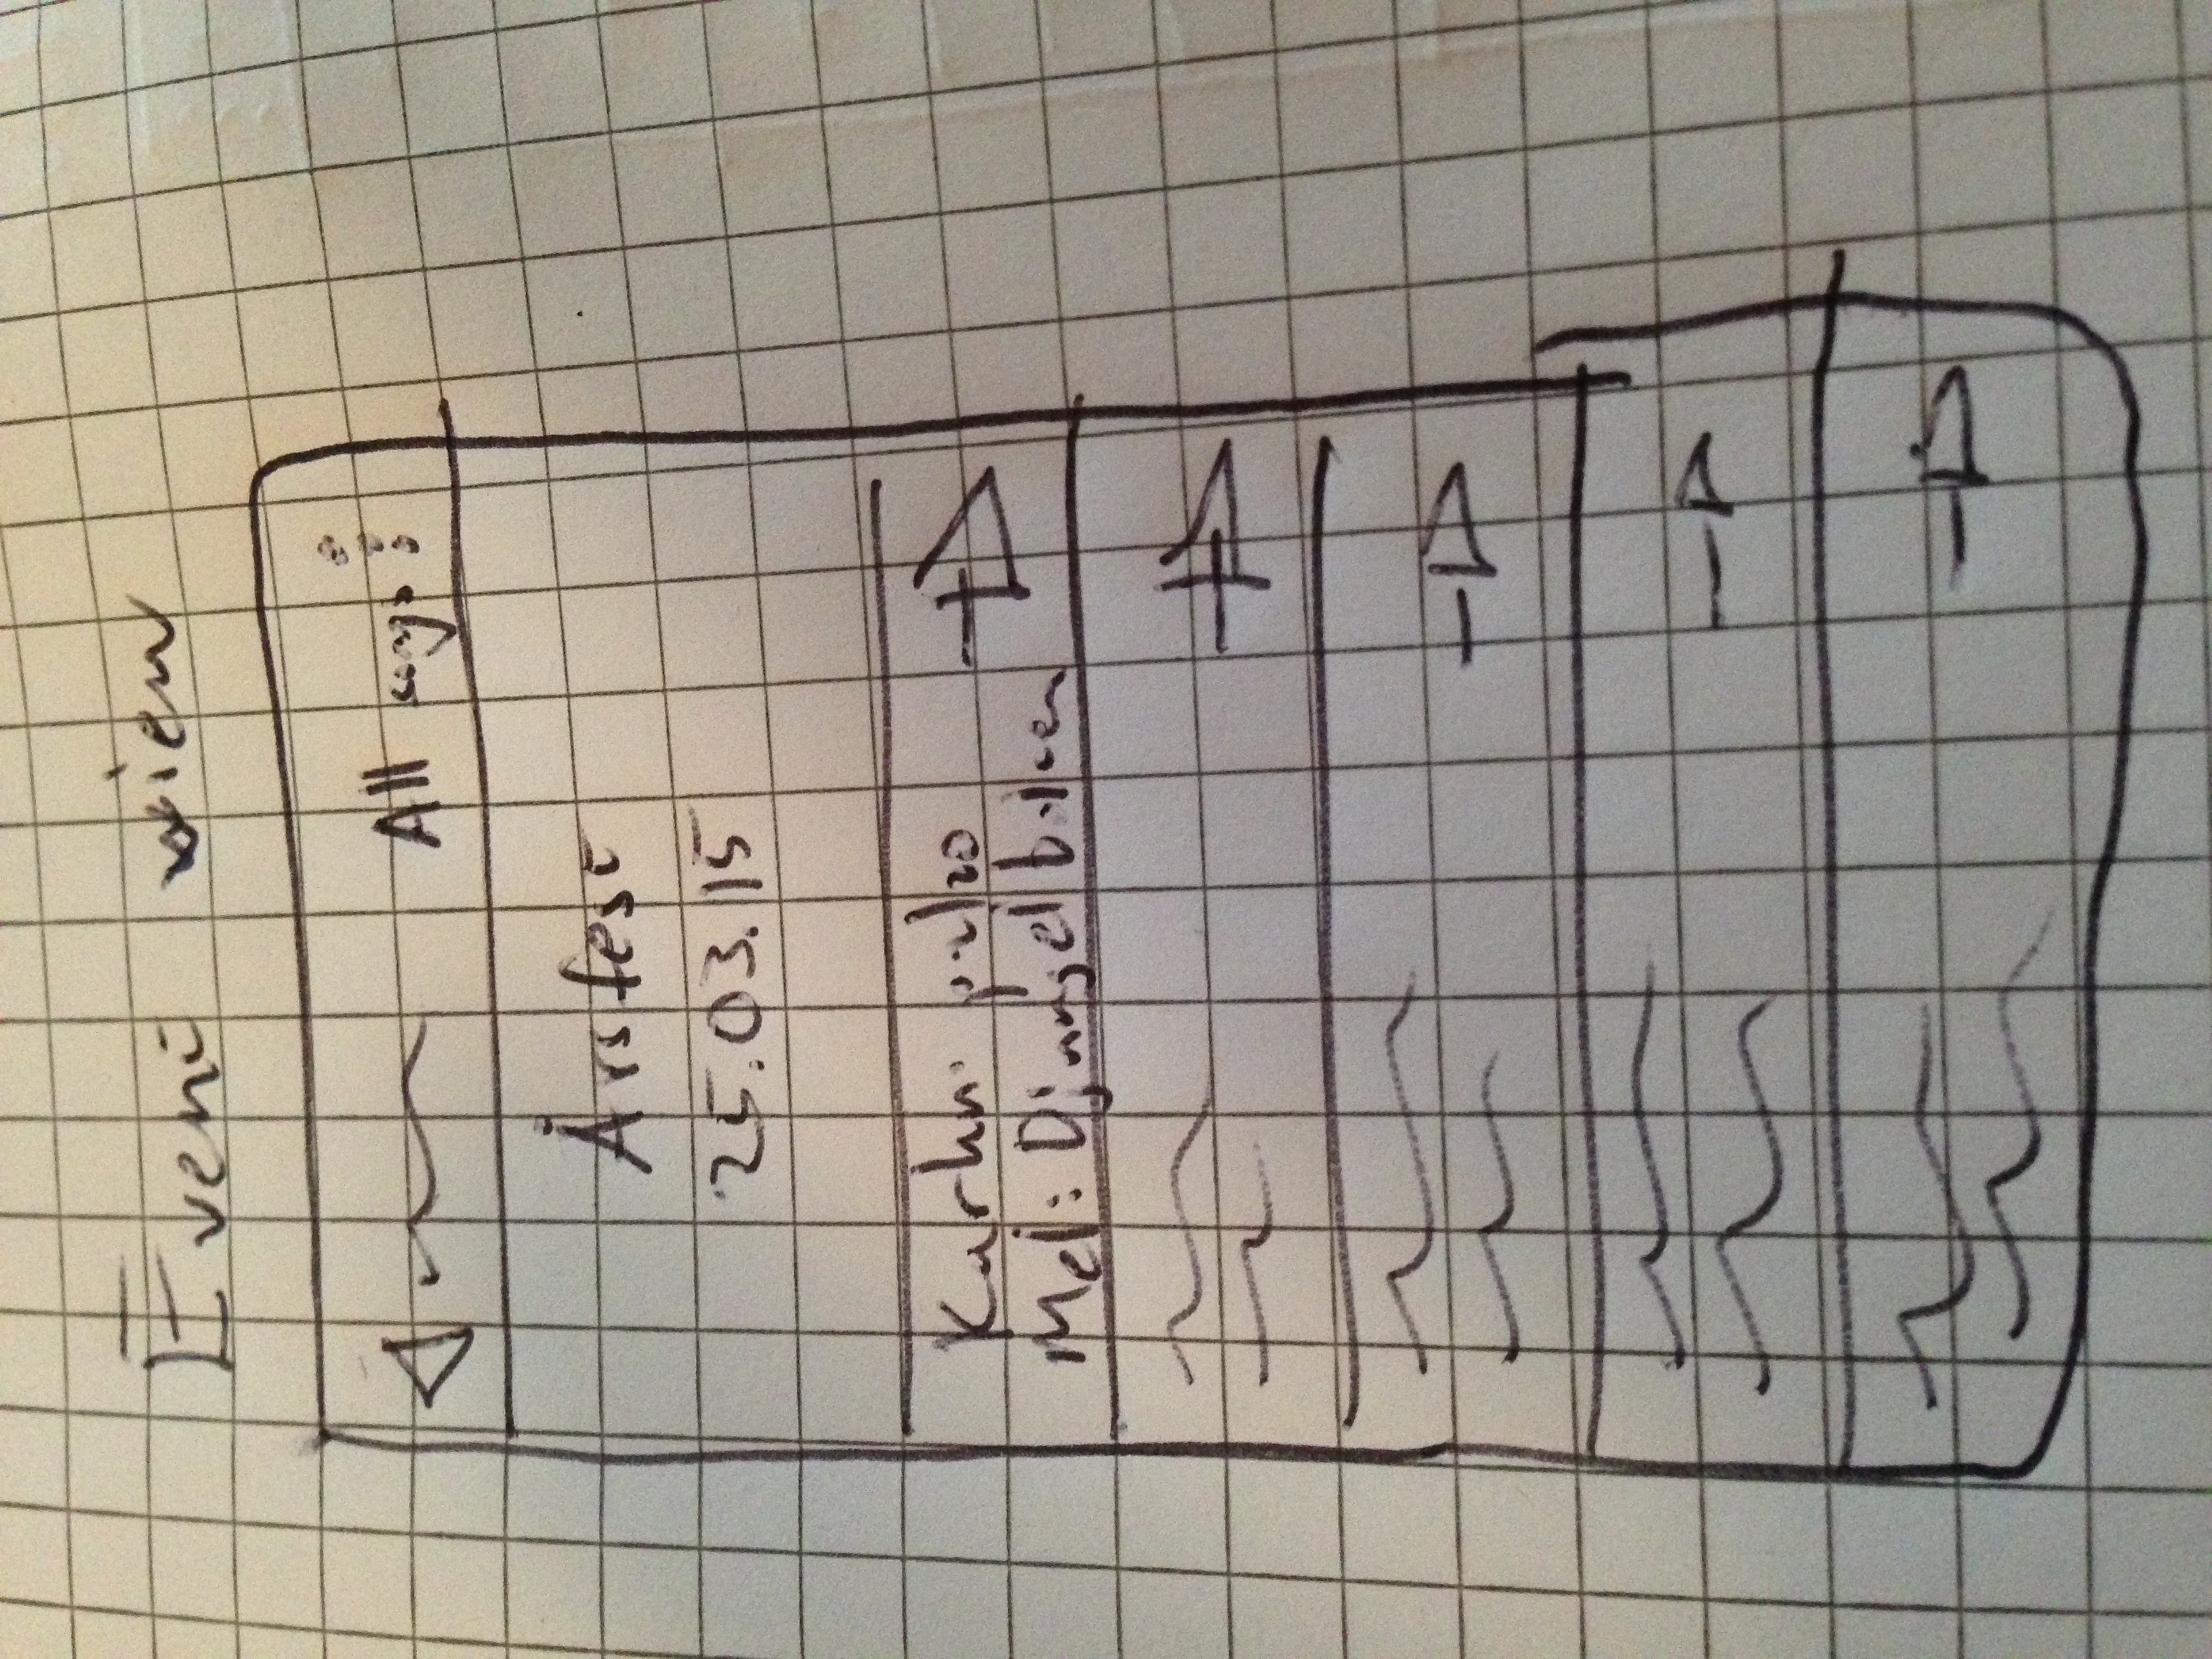 Event view
All songs
Årsfest
25.03.15
Mel: Djungelboken